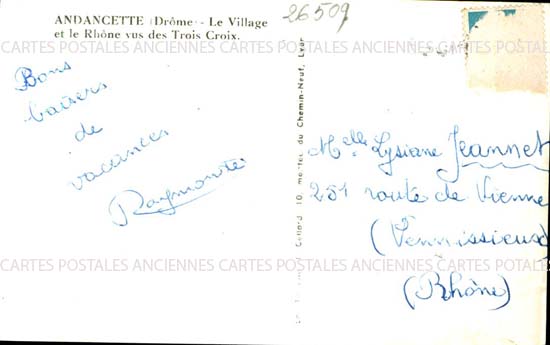 ANDANCETTE (Drôme) - Le Village
et le Rhône vus des Trois Croix.
26509
Bons
baisers
de
vacances
Raymonde
Melle Lysiane Jeannet
251 route de Vienne
(Vennissieux)
(Rhône)
Cellard, 10, montée du Chemin-Neuf, Lyon
CARTES POSTALES ANCIENNES - CARTES POSTALES ANCIENNES - CARTES POSTALES ANCIENNES
CARTES POSTALES ANCIENNES CARTES POSTALES ANCIENNES CARTES POSTALES ANCIENNES